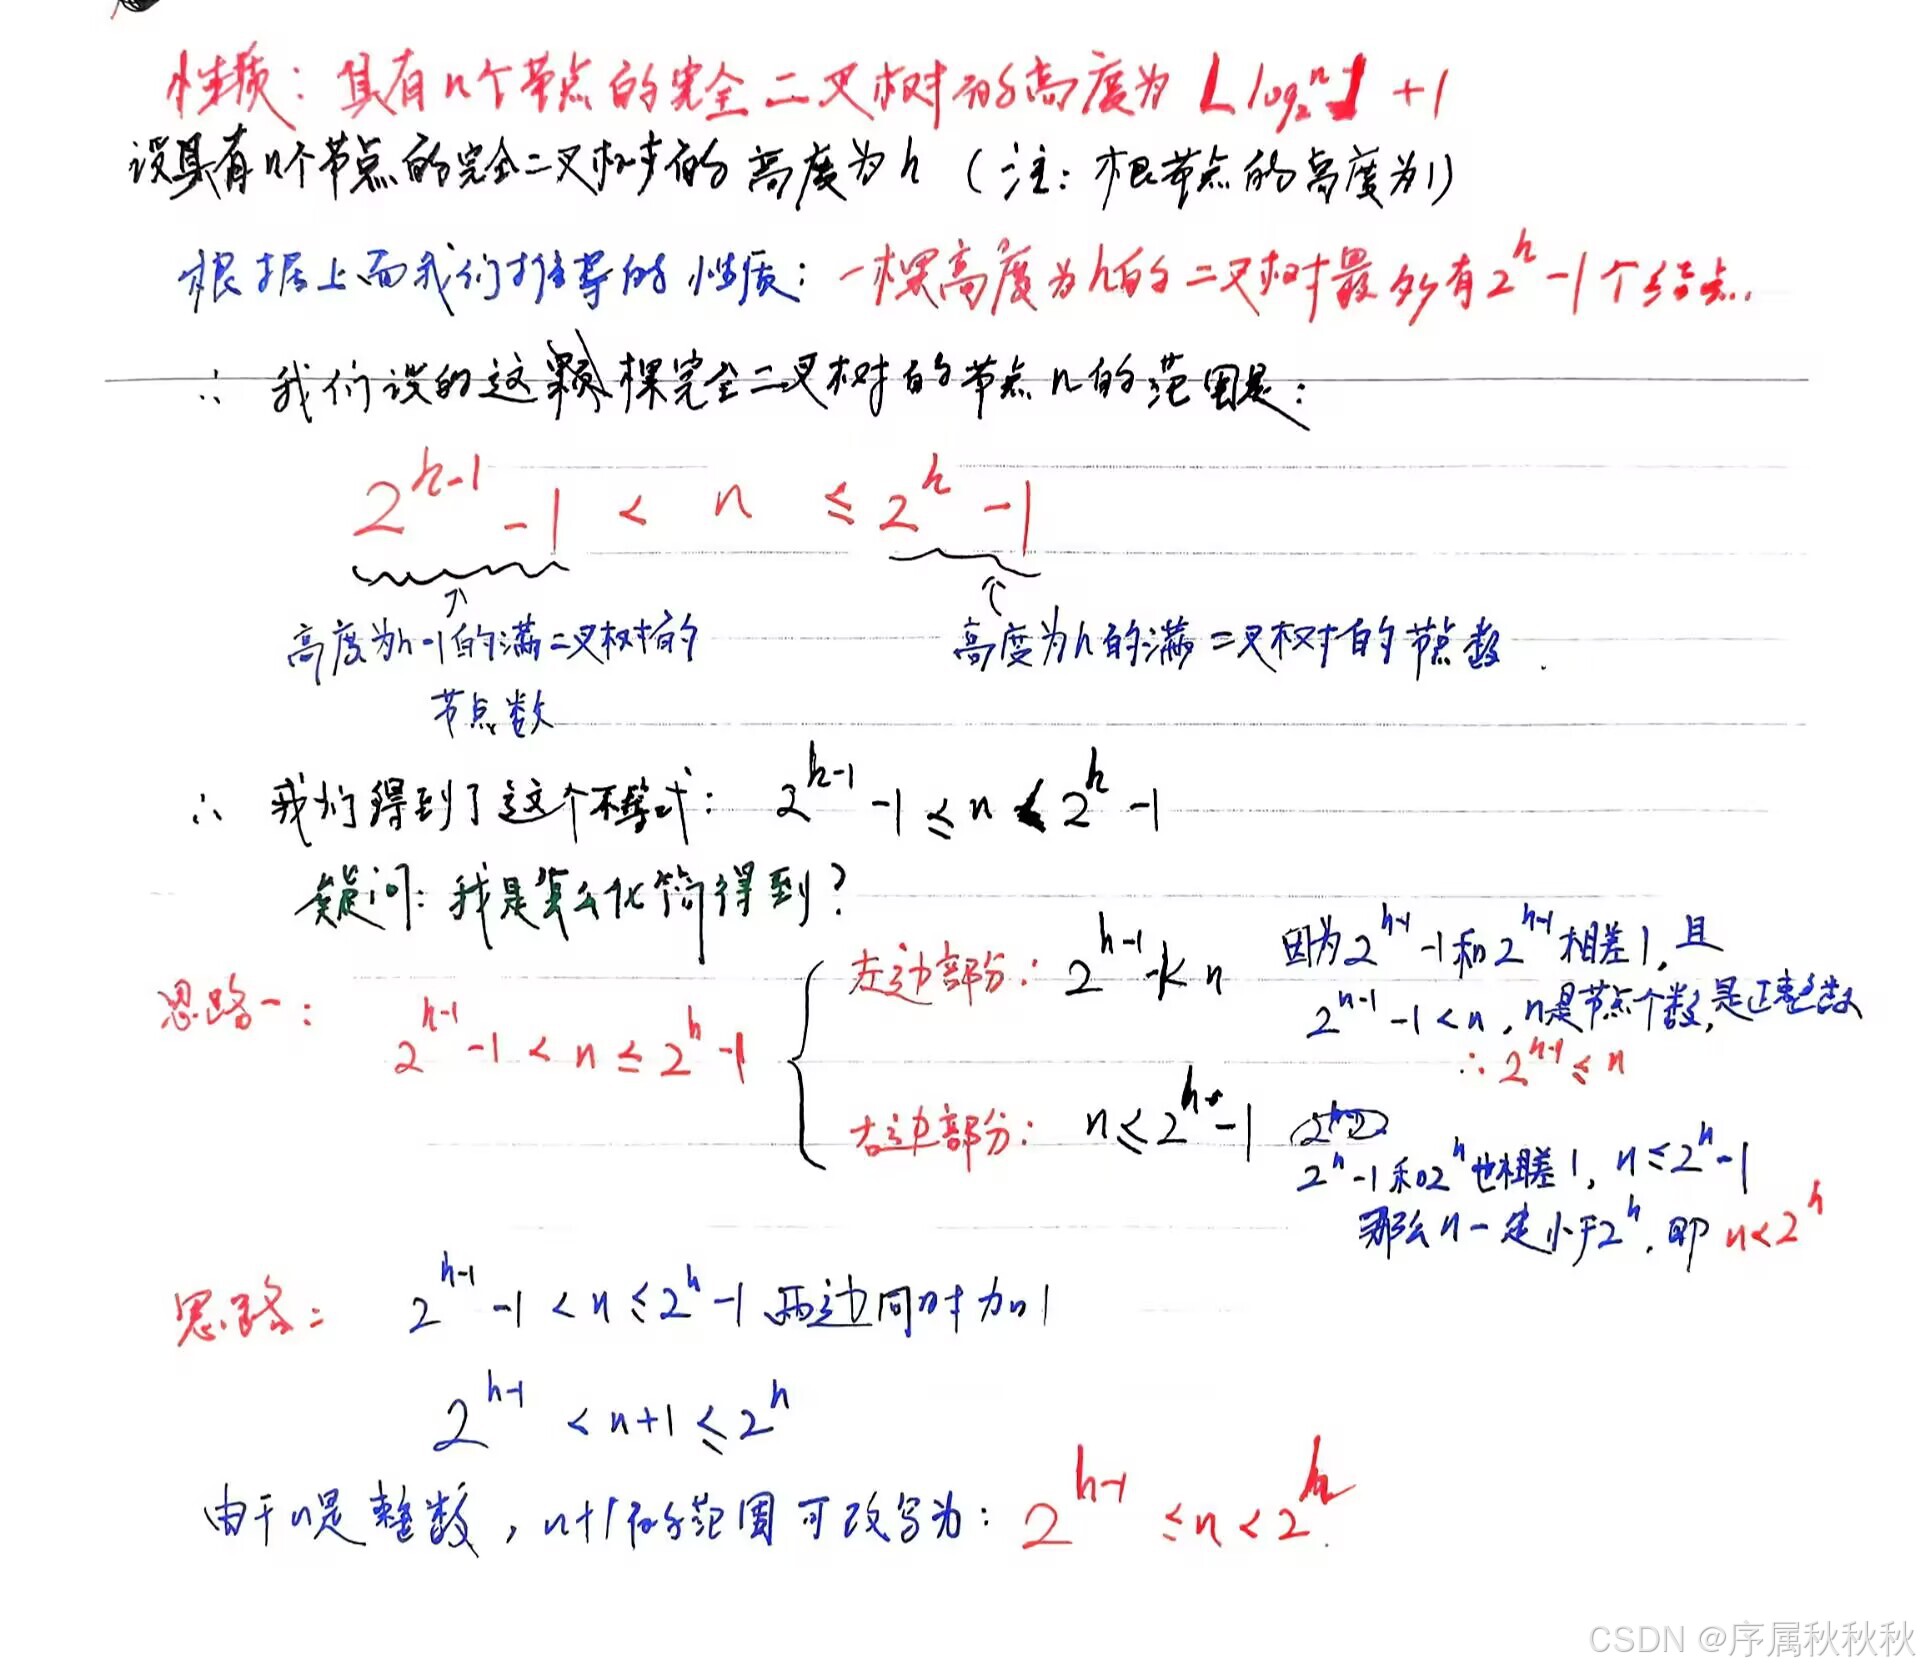 性质：具有n个节点的完全二叉树的高度为 ⌊log₂ⁿ⌋ +1
设具有n个节点的完全二叉树的高度为h （注：根节点的高度为1）
根据上面我们推导的性质：一棵高度为h的二叉树最多有2^h -1个结点.
∴ 我们设的这棵完全二叉树的节点n的范围是：
2^(h-1) -1 < n ≤ 2^h -1
高度为h-1的满二叉树的
节点数
高度为h的满二叉树的节点数.
∴ 我们得到了这个不等式： 2^(h-1) -1 ≤ n < 2^h -1
疑问：我是怎么化简得到？
思路一：
2^(h-1) -1 < n ≤ 2^h -1
左边部分： 2^(h-1) -1< n
因为2^(h-1) -1和2^(h-1)相差1, 且
2^(h-1) -1<n, n是节点个数,是正整数
∴ 2^(h-1) ≤ n
右边部分： n ≤ 2^h -1
2^h -1和2^h也相差1, n ≤ 2^h -1
那么n一定小于2^h, 即 n<2^h
思路二
2^(h-1) -1 < n ≤ 2^h -1 两边同时加1
2^(h-1) < n+1 ≤ 2^h
由于n是整数, n+1的范围可改写为： 2^(h-1) ≤ n < 2^h.
CSDN @序属秋秋秋